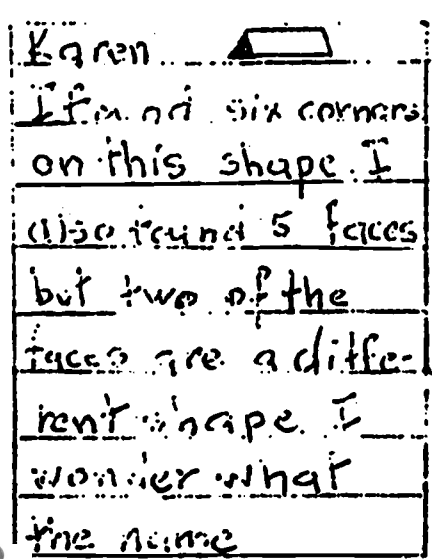 Karen
I found six corners
on this shape. I
also found 5 faces
but two of the
faces are a diffe-
rent shape. I
wonder what
the name